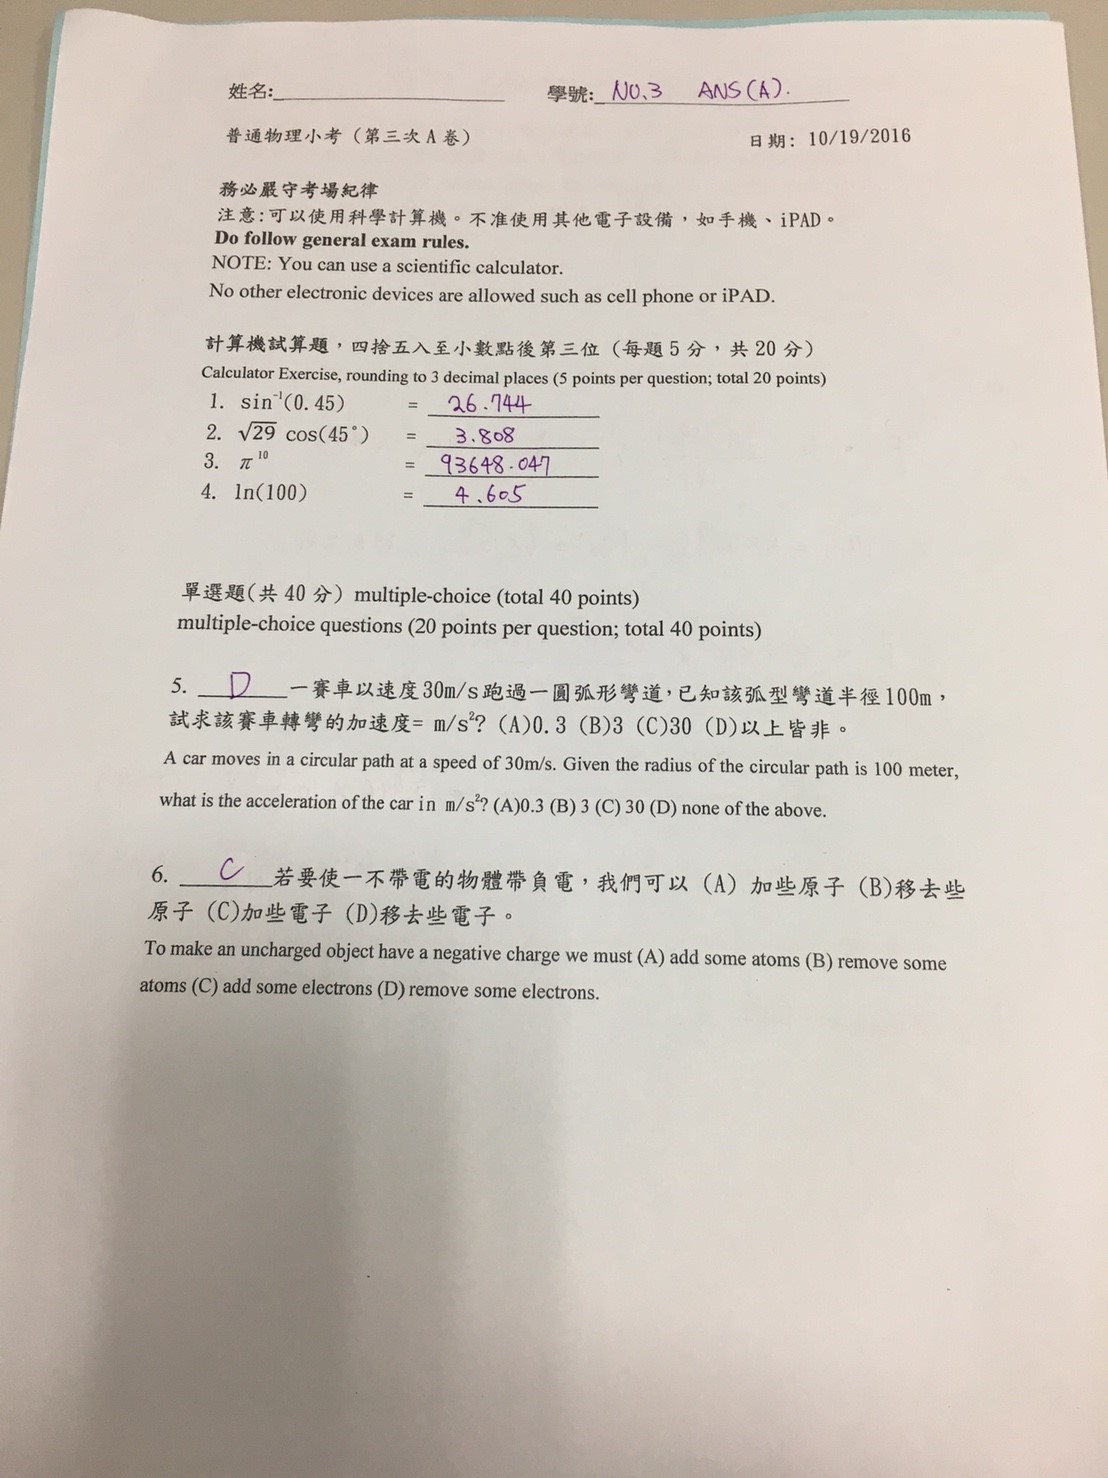 姓名:____________ 學號: NO.3 ANS(A).
普通物理小考（第三次 A 卷） 日期: 10/19/2016
務必嚴守考場紀律
注意:可以使用科學計算機。不准使用其他電子設備，如手機、iPAD。
Do follow general exam rules.
NOTE: You can use a scientific calculator.
No other electronic devices are allowed such as cell phone or iPAD.
計算機試算題，四捨五入至小數點後第三位（每題 5 分，共 20 分）
Calculator Exercise, rounding to 3 decimal places (5 points per question; total 20 points)
1. sin⁻¹(0.45) = 26.744
2. √29 cos(45°) = 3.808
3. π¹⁰ = 93648.047
4. ln(100) = 4.605
單選題(共 40 分) multiple-choice (total 40 points)
multiple-choice questions (20 points per question; total 40 points)
5. D 一賽車以速度 30m/s 跑過一圓弧形彎道，已知該弧型彎道半徑 100m，
試求該賽車轉彎的加速度= m/s²? (A)0.3 (B)3 (C)30 (D)以上皆非。
A car moves in a circular path at a speed of 30m/s. Given the radius of the circular path is 100 meter,
what is the acceleration of the car in m/s²? (A)0.3 (B) 3 (C) 30 (D) none of the above.
6. C 若要使一不帶電的物體帶負電，我們可以 (A) 加些原子 (B)移去些
原子 (C)加些電子 (D)移去些電子。
To make an uncharged object have a negative charge we must (A) add some atoms (B) remove some
atoms (C) add some electrons (D) remove some electrons.